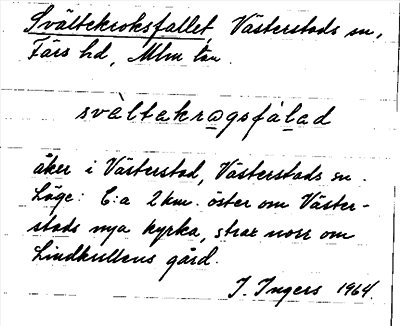 Svältekroksfallet, Västerstads sn,
Färs hd, Mlm län.
svàltakragsfálad
åker i Västerstad, Västerstads sn.
Läge: C:a 2 km. öster om Väster-
stads nya kyrka, strax norr om
Lindkullens gård.
I. Ingers 1964.